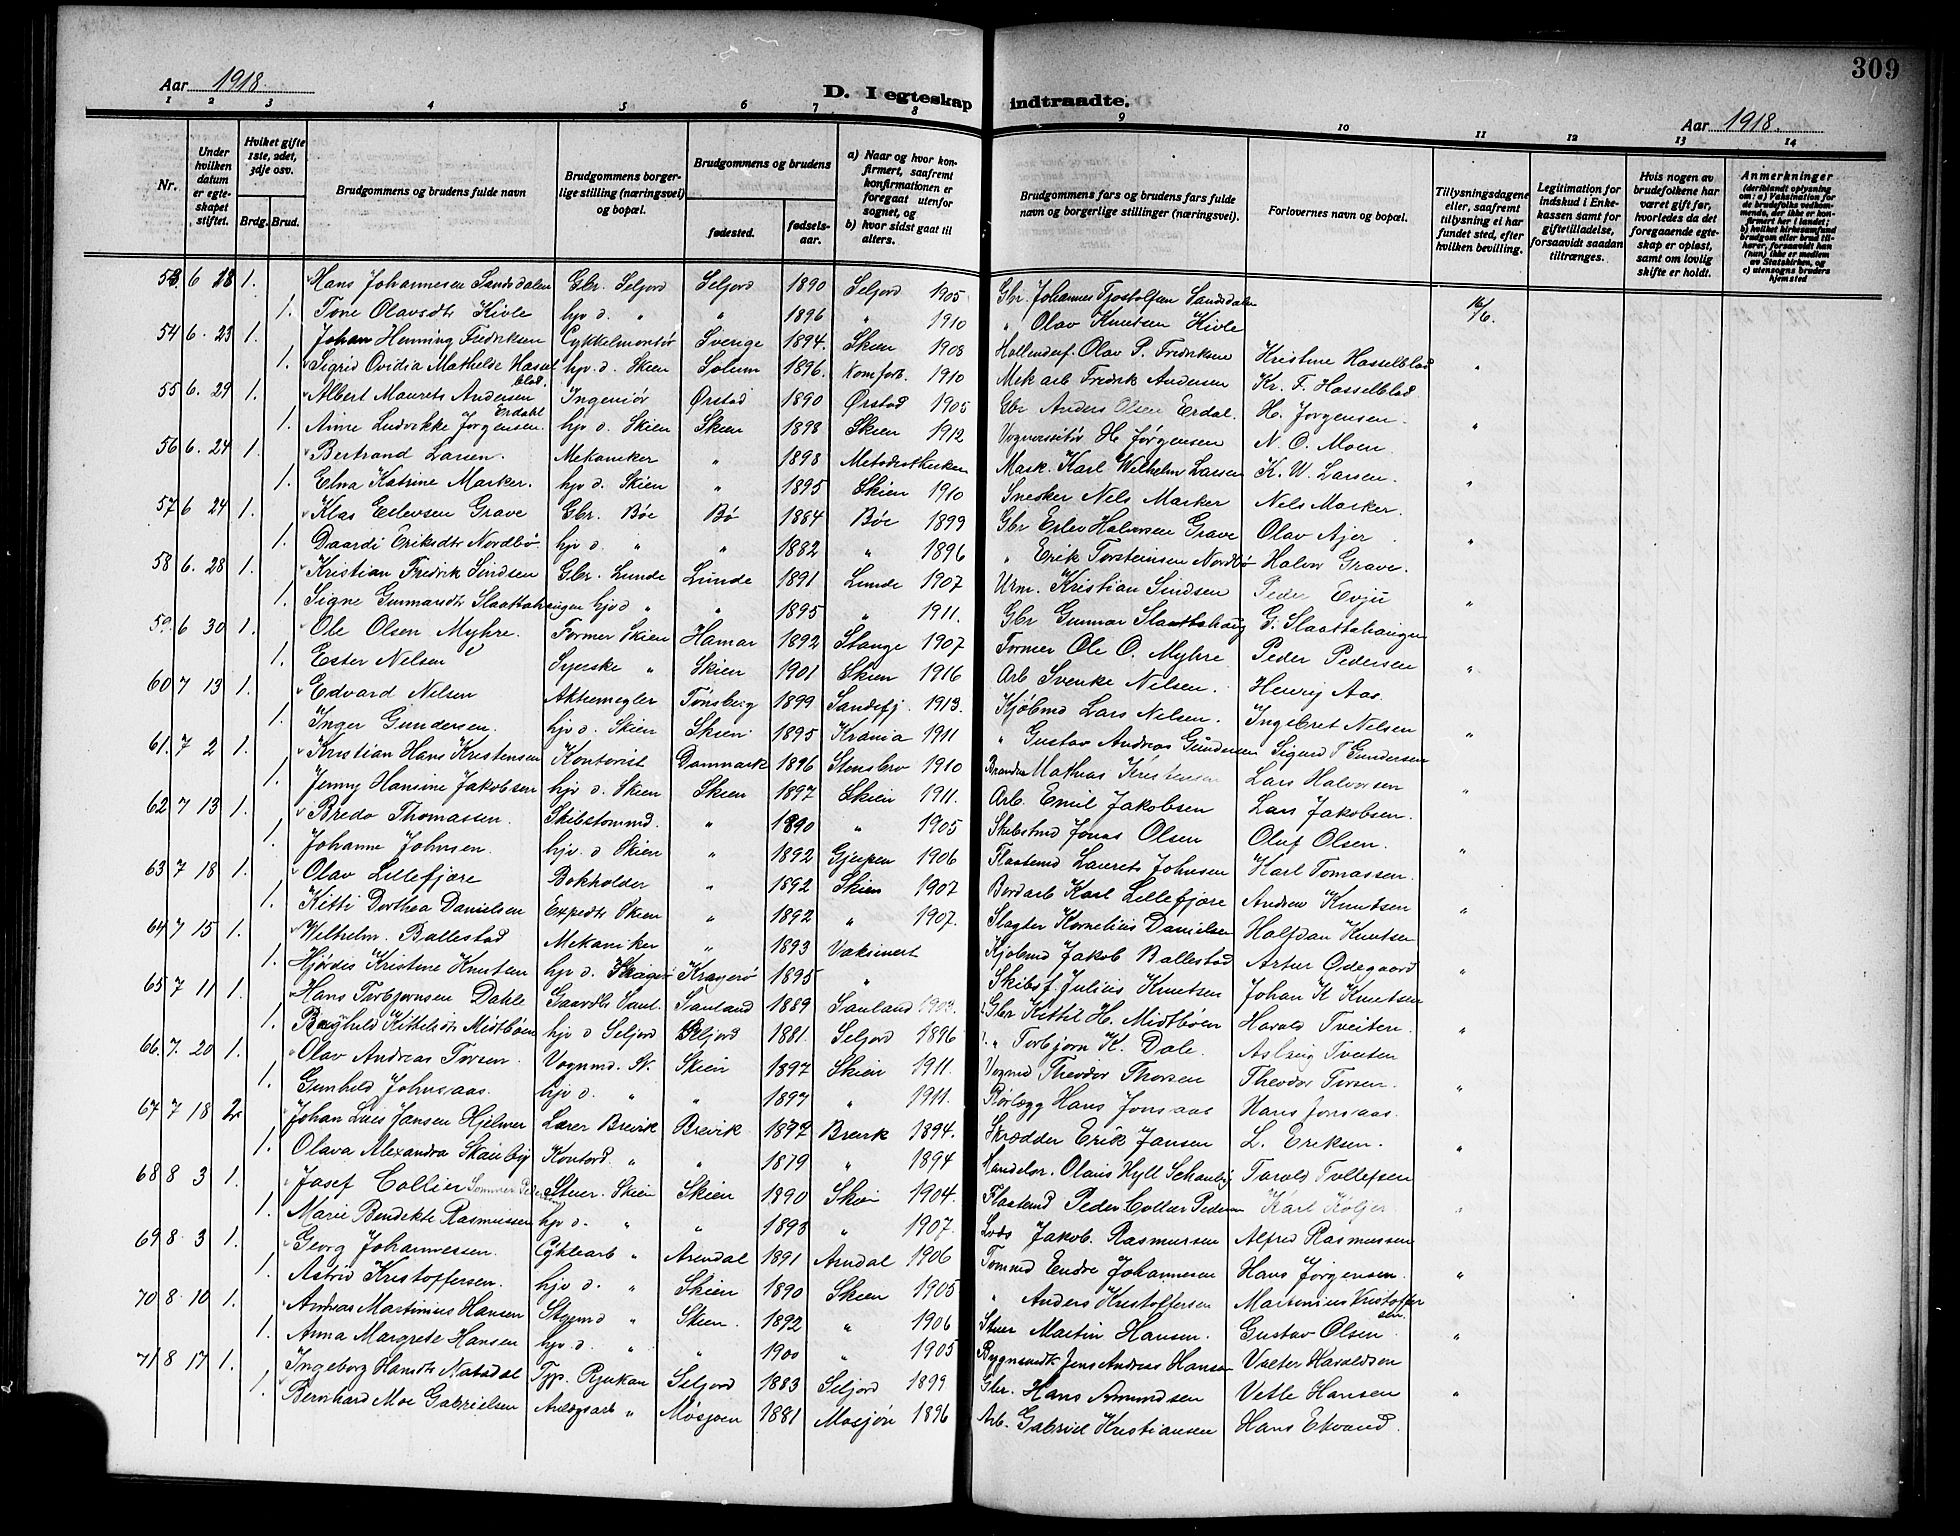 309
Aar 1918.
D. I egteskap indtraadte.
Aar 1918.
1 2 3 4 5 6 7 8 9 10 11 12 13 14
Nr.
Under hvilken datum er egteskapet stiftet.
Hviket gifte 1ste, 2det, 3dje osv.
Brdg. Brud.
Brudgommens og brudens fulde navn
Brudgommens borgerlige stilling (næringsvei) og bopæl.
Brudgommens og brudens
fødested.
fødselsaar.
a) Naar og hvor konfirmert, saafremt konfirmationen er foregaat utenfor sognet, og
b) hvor sidst gaat til alters.
Brudgommens fars og brudens fars fulde navn og borgerlige stillinger (næringsvei).
Forlovernes navn og bopæl.
Tillysningsdagene eller, saafremt tillysning ei har fundet sted, efter hvilken bevilling.
Legitimation for indskud i Enkekassen samt for giftetilladelse, forsaavidt saadan tiltrænges.
Hvis nogen av brudefolkene har været gift før, hvorledes da det foregaaende egteskap er opløst, samt om lovlig skifte er holdt.
Anmerkninger
(deriblandt oplysning om: a) Vaksination for de brudefolks vedkommende, der ikke er konfirmert her i landet;
b) hvilket kirkesamfund brudgom eller brud tilhører, forsaavidt han (hun) ikke er medlem av Statskirken, og
c) utensogns bruders hjemsted
53. 6 28 1. Hans Johannesen Sandsdalen Gbr. Seljord Seljord 1890 Seljord 1905 Gbr. Johannes Tjostolfsen Sandsdalen 16/6.
1. Tone Olavsdtr Kivle hjv d. " " 1896 " 1910 " Olav Knutsen Kivle
54 6. 23 1. Johan Henning Fredriksen Cykkelmontør Sverige 1894. Skien 1908 Hollenderf. Olav P. Fredriksen Kristine Hasselblad "
1. Sigrid Ovidia Mathilde Hasselblad. hjv. d. Skien Solum 1896. Komfort. 1910 Mek arb Fredrik Andersen Kr. F. Hasselblad
55 6. 29 1. Albert Maurets Andersen Erdahl Ingeniør Ørstad 1890 Ørstad 1905 Gbr Anders Olsen Erdal. H. Jørgensen. "
1. Anne Ludvikke Jørgensen. hjv d. Skien Skien 1898 Skien 1912 H. Jørgensen N. O. Moen.
56 6. 24 1. Bertrand Larsen. Mekaniker " 1898 Metodistkirken Mask. Karl Wilhelm Larsen K. W. Larsen. "
1. Elna Katrine Marker. hjv d. Skien " 1895 Skien 1910 Snekker Nels Marker Nels Marker.
57 6 24 1. Klas Eilevsen Grave Gbr. Bøe Bø 1884 Bøe 1899 Gbr Eilev Halvorsen Grave Olav Ajer "
1. Daardi Eriksdtr Nordbø. hjv d. " " 1882 " 1896 " Erik Torsteinsen Nordbø Halvor Grave.
58 6. 28 1. Kristian Fredrik Sindsen Gbr. Lunde Lunde 1891 Lunde 1907 Urm. Kristian Sindsen Peder Evju "
1. Signe Gunnarsdtr Slaattahaugen hjv d " " 1895 " 1911. Gbr Gunnar Slaattahaug G. Slaattahaugen
59 6 30 1. Ole Olsen Myhre. Former Skien Hamar 1892 Stange 1907 Former Ole O. Myhre Peder Pedersen "
1. Ester Nelsen Syerske " Skien 1901 Skien 1916 Arb Svenke Nelsen. Henrij Aas.
60 7 13 1. Edvard Nelsen Aktiemegler Tønsberg 1899 Sandefj. 1913. Kjøbmd Lars Nelsen. Ingebret Nelsen "
1. Inger Gundersen. hjv d. Skien Skien 1895 Krania 1911 " Gustav Andreas Gundersen Sigurd T Gundersen
61. 7 2 1. Kristian Hans Kristensen Kontorist Danmark 1896 Stensbro 1910 Mathias Kristensen Lars Halvorsen "
1. Jenny Hansine Jakobsen hjv d. Skien Skien 1897 Skien 1911. Arb. Emil Jakobsen Lars Jakobsen.
62 7 13 1. Bredo Thomassen. Skibstømmd. " 1890 " 1905 Skibstmd Jonas Olsen Oluf Olsen. "
1. Johanne Johnsen. hjv. d Skien " 1892 Gjerpen 1906 Flaatemd Laurets Johnsen Karl Tomassen.
63 7 18 1. Olav Lillefjære Bokholder " 1892 Skien 1907 Bordarb Karl Lillefjære Andrew Knudsen "
1. Kitti Dorthea Danielsen Expedtr Skien " 1892 " 1907. Slagter Kornelius Danielsen Halfdan Knutsen
64 7 15 1. Wilhelm. Ballestad Mekaniker " 1893 Vaksinert Kjøbmd Jakob Ballestad Artur Ødegaard "
1. Hjørdis Kristine Knutsen hjv d. Kragerø 1895 " Skibsf. Julius Knutsen Johan K Knutsen
65 7 11 1. Hans Torbjørnsen Dahle Gaardbr. Sauland 1889 Sauland 1903. Gbr Kittil H. Midtbøen Harald Tveiten. "
1. Ragnhild Kittilsdtr Midtbøen hjv d Seljord Seljord 1881. Seljord 1896 " Torbjørn K. Dale. Aslaug Tveiten
66. 7. 20 1. Olav Andreas Torsen. Vognmd. Sk. Skien 1897 Skien 1911. Vognmd Theodor Thorsen Theodor Torsen. "
1. Gunhild Johnsaas. hjv d. " " 1897 " 1911. Rørlægg Hans Jonsaas Hans Jonsaas.
67 7 18 2. Johan Lars Jansen Hjelmer Lærer Brevik Brevik 1872 Brevik 1894. Skrædder Erik Jansen L. Eriksen. "
1. Olava Alexandra Skauby Kontord. " " 1879 " 1894 Handelsr. Olaus Hyll Schauby Tarald Tollefsen
68 8 3 1. Josef Collier Stuer. Skien Skien 1890 Skien 1904. Flaatemd Peder Collier Pedersen Karl "
1. Marie Bendikte Rasmussen hjv d. " " 1893 " 1907. Lods Jakob. Rasmussen Alfred Rasmussen
69 8 3 1. Georg Johannessen. Cyklearb " Arendal 1891 Arndal 1906 Tømmd Endre Johannesen Hans Jørgensen. "
1. Astrid Kristoffersen. hjv d. " Skien 1890 Skien 1905 " Anders Kristoffersen Martinius Kristoffersen.
70 8. 10 1. Andreas Martinius Hansen Styrmd " Skien. 1892 " 1906 Stuer Martin Hansen. Gustav Olsen "
1. Anna Margrete Hansen hjv d. " " 1900 " 1905 Bygnsnedk Jens Andreas Hansen Valter Haraldsen
71 8 17 1. Ingeborg Hansdtr Natadal Typ. Rjukan Seljord 1883 Seljord 1899 Gbr. Hans Amundsen Vetle Hansen "
1. Bernhard Moe Gabrielsen Anlægsarb " Mosjøen 1881 Mosjøn 1896 Arb. Gabriel Kristiansen Hans Ekvand.